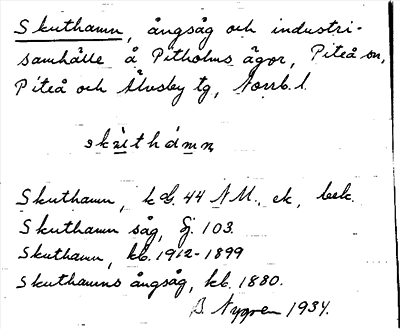 Skuthamn, ångsåg och industri-
samhälle å Pitholms ägor, Piteå sn,
Piteå och Älvsby tg, Norrb. l.
skùthám̥n
Skuthamn, k bl. 44 NM., ek, bebk.
Skuthamn såg, Gj. 103.
Skuthamn, kb. 1912-1899
Skuthamns ångsåg, kb. 1880.
B Nygren 1934.